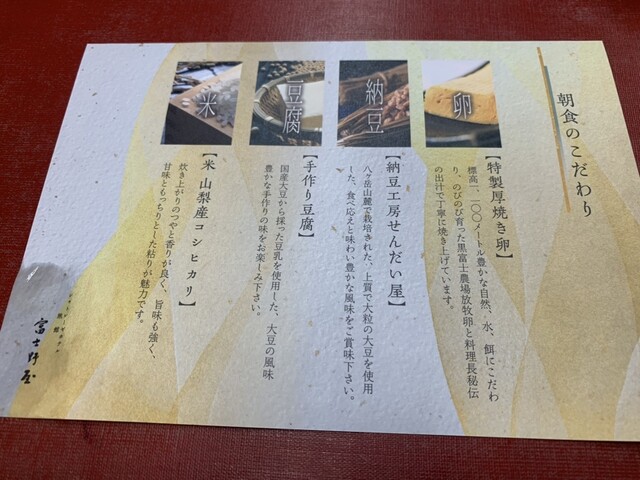 朝食のこだわり
卵
【特製厚焼き卵】
標高一、一〇〇メートル豊かな自然、水、餌にこだわ
り、のびのび育った黒富士農場放牧卵と料理長秘伝
の出汁で丁寧に焼き上げています。
納豆
【納豆工房せんだい屋】
八ヶ岳山麓で栽培された、上質で大粒の大豆を使用
した、食べ応えと味わい豊かな風味をご賞味下さい。
豆腐
【手作り豆腐】
国産大豆から採った豆乳を使用した、大豆の風味
豊かな手作りの味をお楽しみ下さい。
米
【米 山梨産コシヒカリ】
炊き上がりのつやと香りが良く、旨味も強く、
甘味ともっちりとした粘りが魅力です。
富士野屋